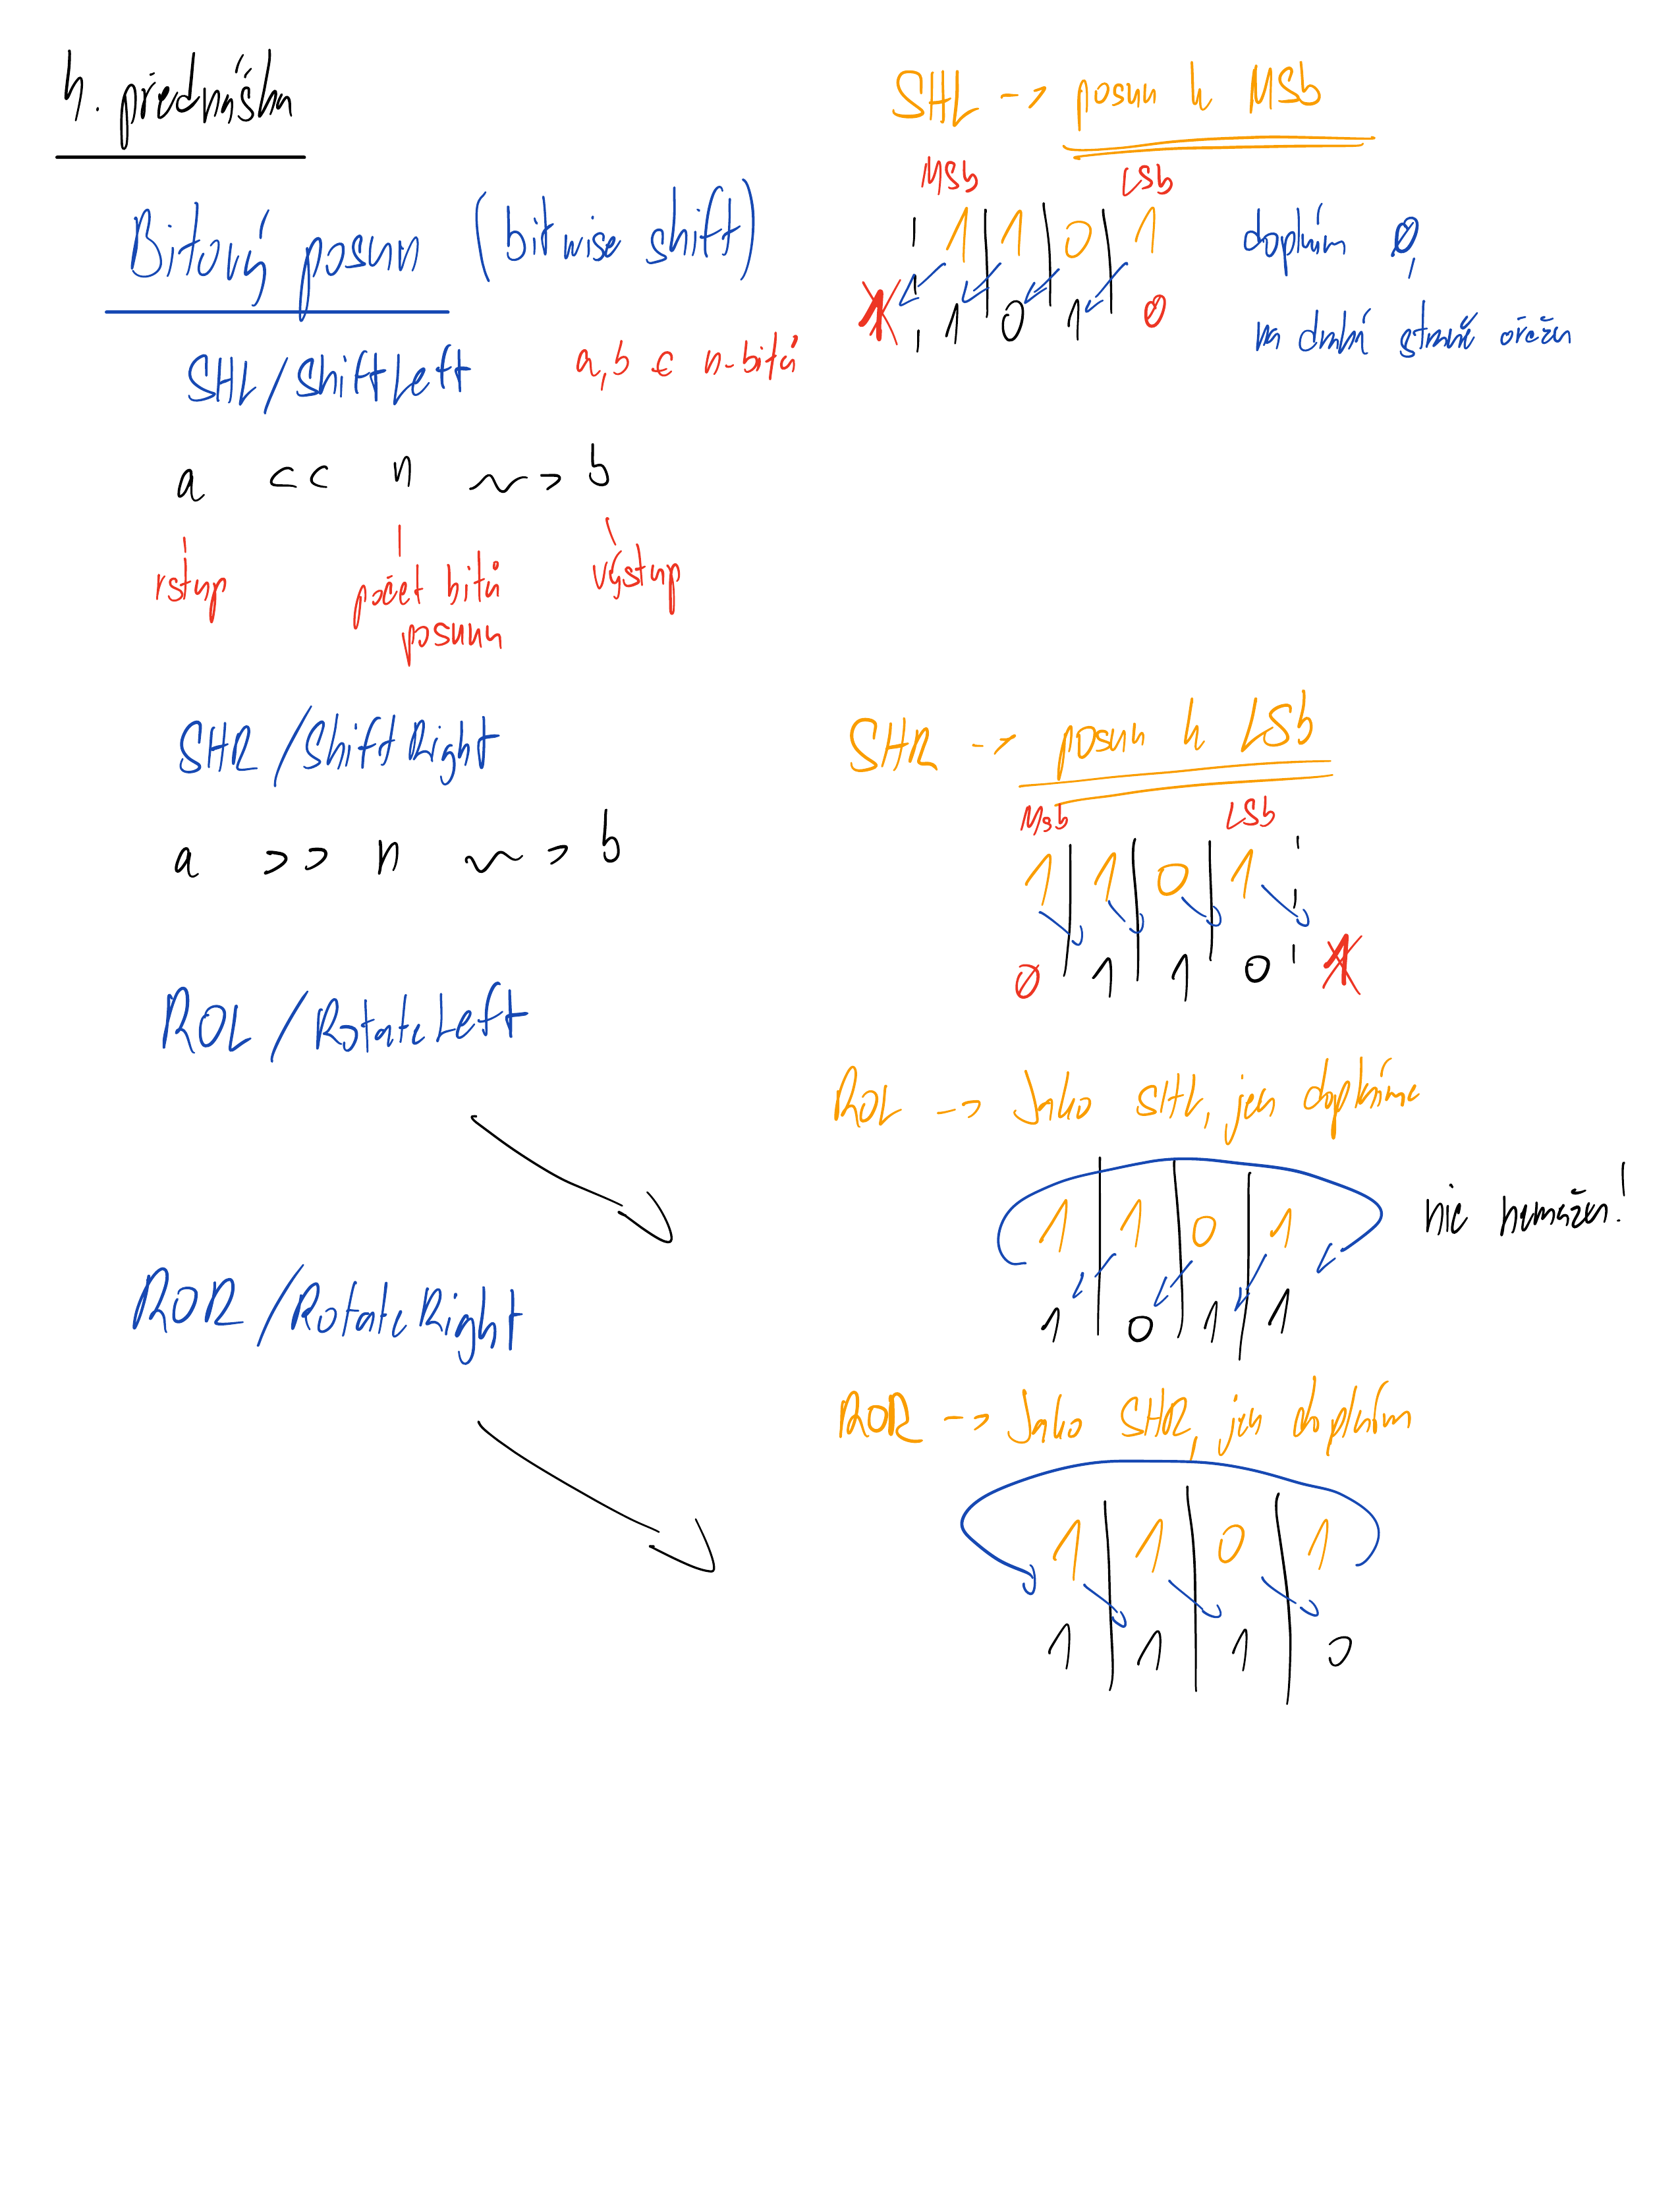 4. přednáška
Bitový posun (bitwise shift)
SHL/ShiftLeft a,b ∈ n-bitů
a << n ~> b
vstup
počet bitů
posunu
výstup
SHL -> posun k MSb
MSb LSb
1 1 0 1
1 1 0 1 0
doplním 0,
na druhé straně ořežu
SHR/ShiftRight
a >> n ~> b
SHR -> posun k LSb
Msb LSb
1 1 0 1
0 1 1 0 1
ROL/RotateLeft
ROL -> Jako SHL, jen doplníme
1 1 0 1
1 0 1 1
nic nemažeu!
ROR/RotateRight
ROR -> Jako SHR, jen doplním
1 1 0 1
1 1 1 0